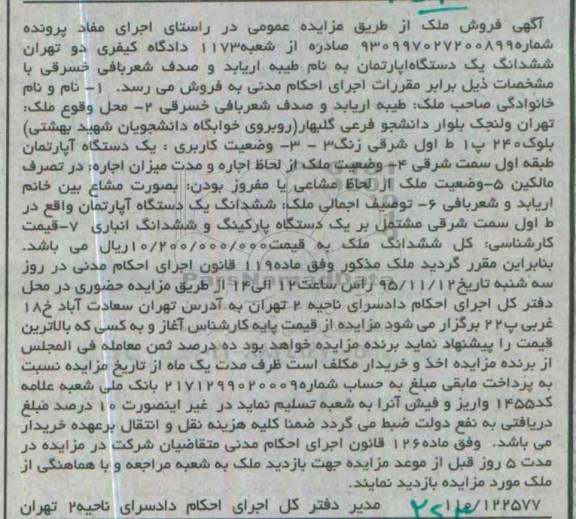 آگهی فروش ملک از طریق مزایده عمومی در راستای اجرای مفاد پرونده
شماره۹۳۰۹۹۷۰۲۷۲۰۰۸۹۹ صادره از شعبه۱۱۷۳ دادگاه کیفری دو تهران
ششدانگ یک دستگاه‌اپارتمان به نام طیبه اریابد و صدف شعربافی خسرقی با
مشخصات ذیل برابر مقررات اجرای احکام مدنی به فروش می رسد. ۱- نام و نام
خانوادگی صاحب ملک: طیبه اریابد و صدف شعربافی خسرقی ۲- محل وقوع ملک:
تهران ولنجک بلوار دانشجو فرعی گلبهار(روبروی خوابگاه دانشجویان شهید بهشتی)
بلوک۲۴۰ پ۱ ط اول شرقی زنگ۳ ۳- وضعیت کاربری : یک دستگاه آپارتمان
طبقه اول سمت شرقی ۴- وضعیت ملک از لحاظ اجاره و مدت میزان اجاره: در تصرف
مالکین ۵-وضعیت ملک از لحاظ مشاعی یا مفروز بودن: بصورت مشاع بین خانم
اریابد و شعربافی ۶- توصیف اجمالی ملک: ششدانگ یک دستگاه آپارتمان واقع در
ط اول سمت شرقی مشتمل بر یک دستگاه پارکینگ و ششدانگ انباری ۷-قیمت
کارشناسی: کل ششدانگ ملک به قیمت۱۰/۲۰۰/۰۰۰/۰۰۰ریال می باشد.
بنابراین مقرر گردید ملک مذکور وفق ماده۱۱۹ قانون اجرای احکام مدنی در روز
سه شنبه تاریخ۹۵/۱۱/۱۲ راس ساعت۱۲ الی۱۴ از طریق مزایده حضوری در محل
دفتر کل اجرای احکام دادسرای ناحیه ۲ تهران به آدرس تهران سعادت آباد خ۱۸
غربی پ۲۲ برگزار می شود مزایده از قیمت پایه کارشناس آغاز و به کسی که بالاترین
قیمت را پیشنهاد نماید برنده مزایده خواهد بود ده درصد ثمن معامله فی المجلس
از برنده مزایده اخذ و خریدار مکلف است ظرف مدت یک ماه از تاریخ مزایده نسبت
به پرداخت مابقی مبلغ به حساب شماره۲۱۷۱۲۹۹۰۲۰۰۰۹ بانک ملی شعبه علامه
کد۱۴۵۵ واریز و فیش آنرا به شعبه تسلیم نماید در غیر اینصورت ۱۰ درصد مبلغ
دریافتی به نفع دولت ضبط می گردد ضمنا کلیه هزینه نقل و انتقال برعهده خریدار
می باشد. وفق ماده۱۲۶ قانون اجرای احکام مدنی متقاضیان شرکت در مزایده در
مدت ۵ روز قبل از موعد مزایده جهت بازدید ملک به شعبه مراجعه و با هماهنگی از
ملک مورد مزایده بازدید نمایند.
۱۱۰/۱۲۲۵۷۷ مدیر دفتر کل اجرای احکام دادسرای ناحیه۲ تهران